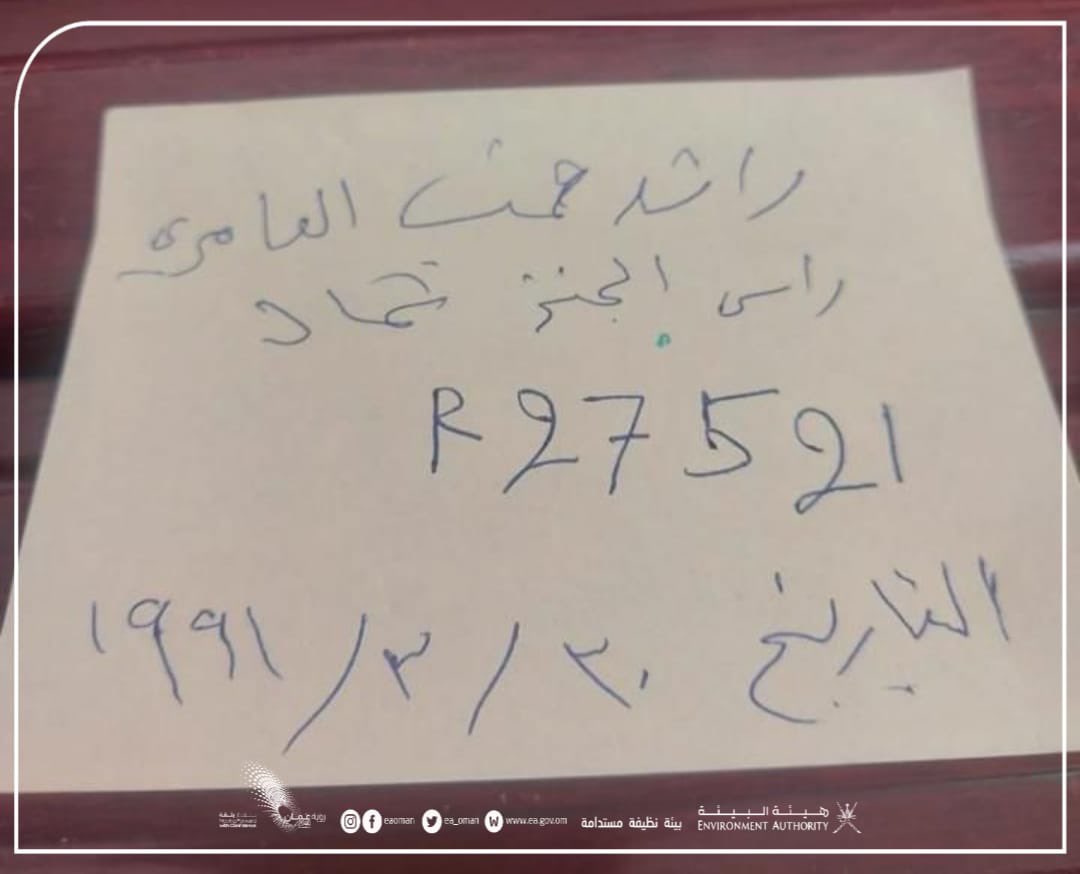 راشد حمد العامري
راس الجنز حماد
R 27521
التاريخ ٣٠/٣/١٩٩١
eaoman
ea_oman
www.ea.gov.om
بيئة نظيفة مستدامة
هيئة البيئة
ENVIRONMENT AUTHORITY